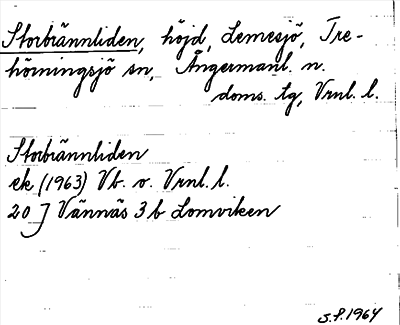 Storbrännliden, höjd, Lemesjö, Tre-
hörningsjö sn, Ångermanl. n.
doms. tg, Vrnl. l.
Storbrännliden
ek (1963) Vb. o. Vrnl. l.
20 J Vännäs 3 b Lomviken
S.F. 1964